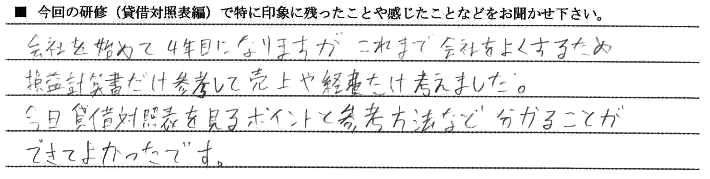 ■ 今回の研修（貸借対照表編）で特に印象に残ったことや感じたことなどをお聞かせ下さい。
会社を始めて4年目になりますが これまで会社をよくするため
損益計算書だけ参考して売上や経費だけ考えました。
今日貸借対照表を見るポイントと参考方法など分かることが
できてよかったです。